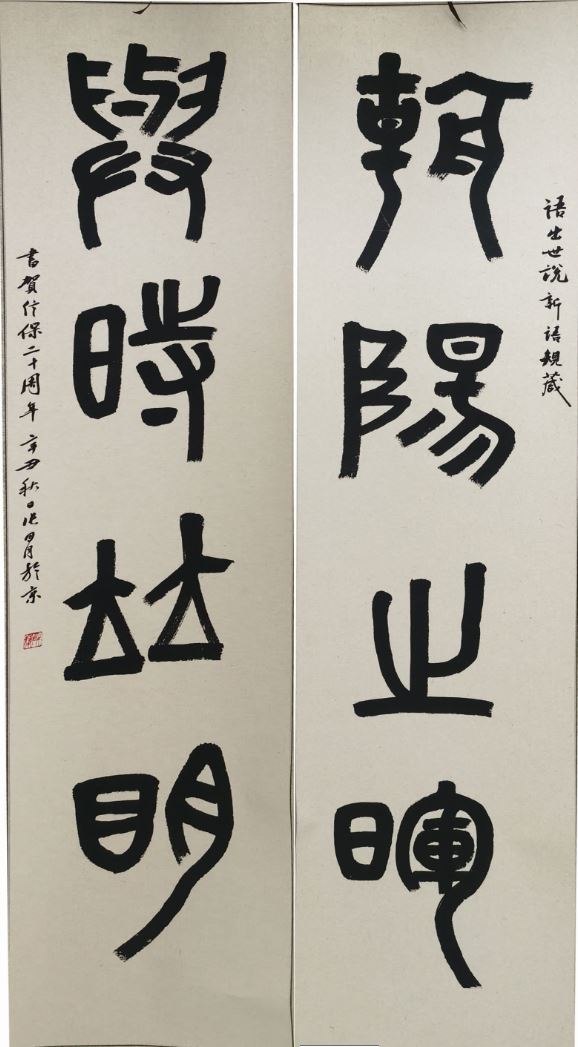 語出世說新語規箴
朝陽之暉
與時竝明
書賀信保二十周年 辛丑秋日 於京